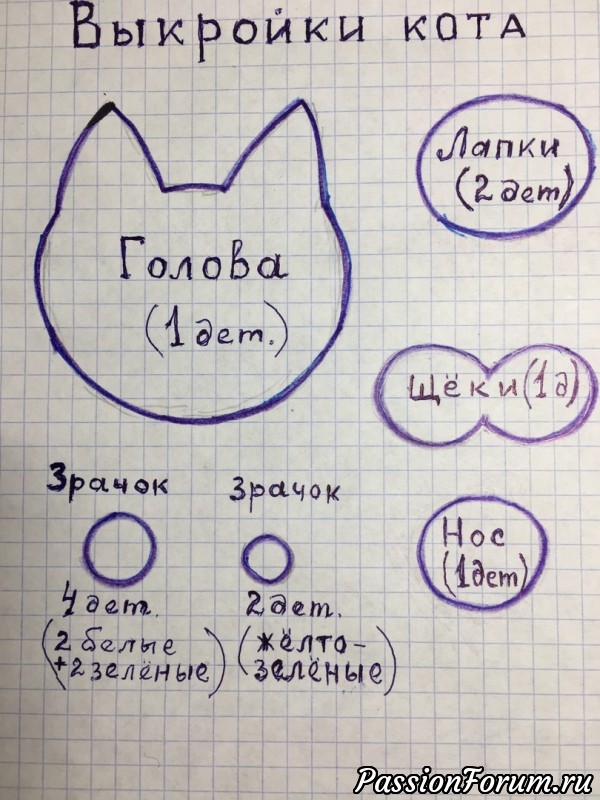 Выкройки кота
Голова
(1 дет.)
Лапки
(2 дет)
Щёки (1д)
Зрачок
4 дет.
(2 белые
+2 зелёные)
Зрачок
2 дет.
(жёлто-
зелёные)
Нос
(1дет)
PassionForum.ru